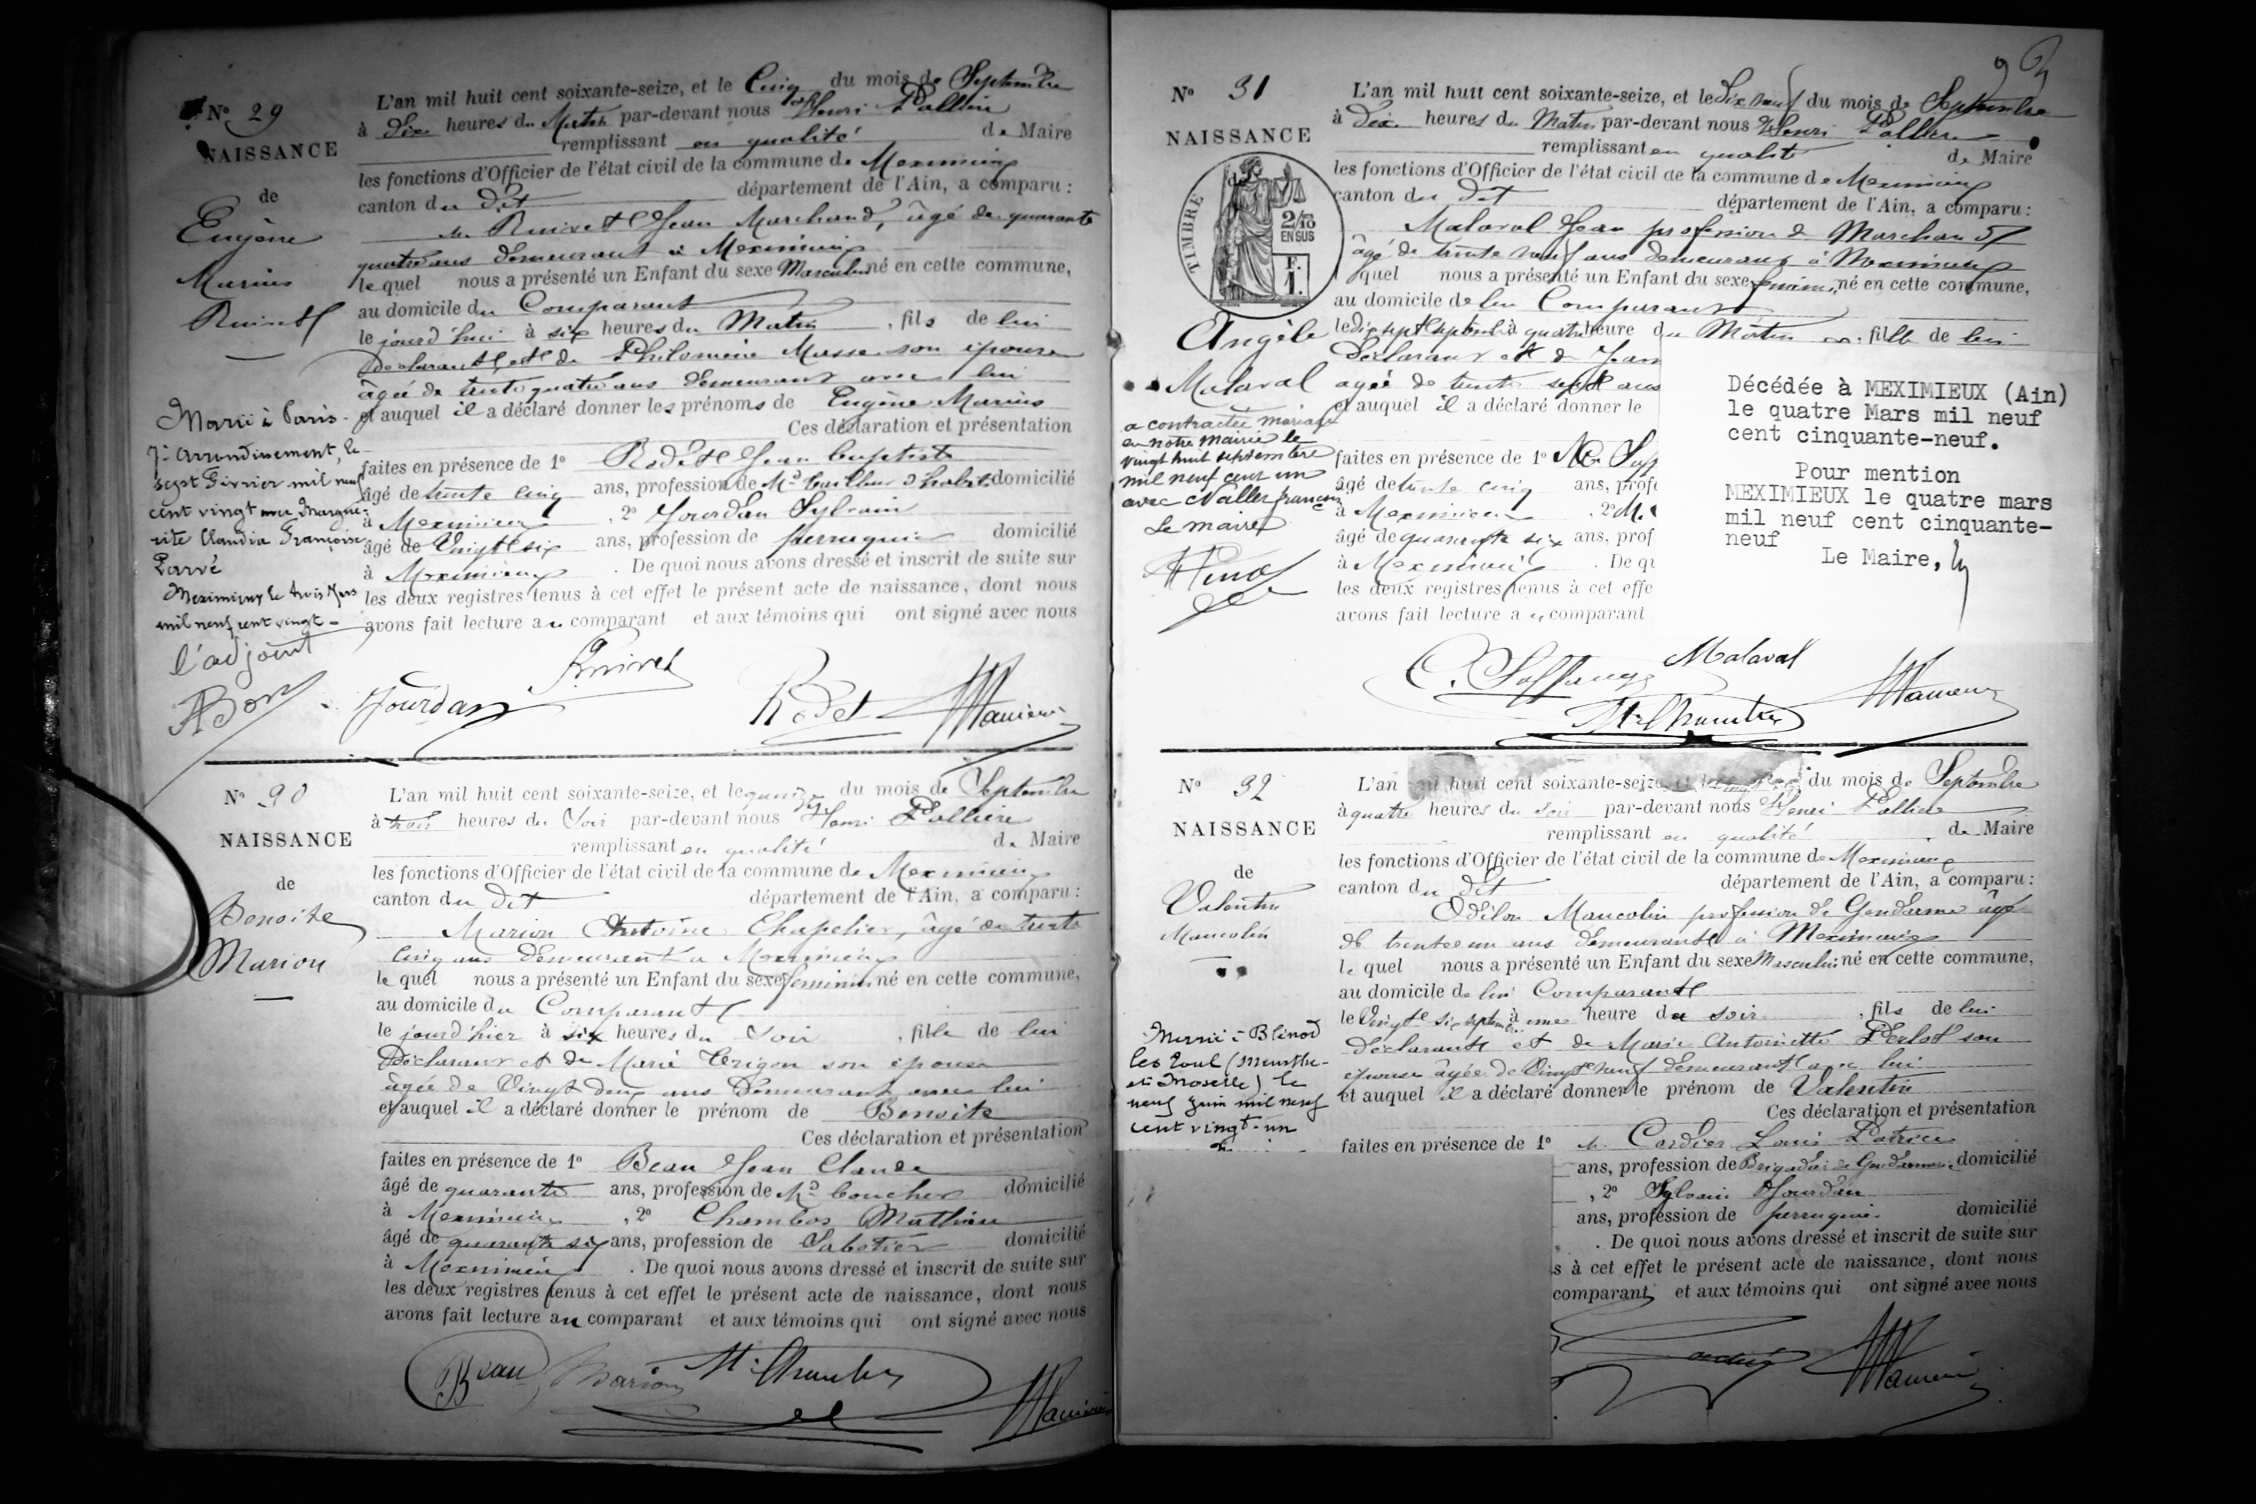 No 29
NAISSANCE
de
Eugène
Marius
Ruivet
L'an mil huit cent soixante-seize, et le Cinq du mois de Septembre
à dix heures du Matin par-devant nous Henri Pallière
remplissant en qualité de Maire
les fonctions d'Officier de l'état civil de la commune de Meximieux
canton du dit département de l'Ain, a comparu :
Ruivet Jean Marchand, âgé de quarante
quatre ans demeurant à Meximieux
le quel nous a présenté un Enfant du sexe Masculin né en cette commune,
au domicile du Comparant
le jourd'hui à six heures du Matin, fils de lui
déclarant, et de Philomène Masse son épouse
âgée de trente quatre ans demeurant avec lui
et auquel il a déclaré donner les prénoms de Eugène Marius
Ces déclaration et présentation
faites en présence de 1o Rodet Jean Baptiste
âgé de trente cinq ans, profession de Md Tailleur d'habits domicilié
à Meximieux, 2o Jourdan Sylvain
âgé de Vingt six ans, profession de perruquier domicilié
à Meximieux. De quoi nous avons dressé et inscrit de suite sur
les deux registres tenus à cet effet le présent acte de naissance, dont nous
avons fait lecture au comparant et aux témoins qui ont signé avec nous
Marié à Paris
7e arrondissement, le
sept Février mil neuf
cent vingt avec Margue-
rite Claudia Françoise
Parvé
Meximieux le trois Mars
mil neuf cent vingt
l'adjoint
Jourdan Ruivet Rodet
No 90
NAISSANCE
de
Benoite
Marion
L'an mil huit cent soixante-seize, et le quinze du mois de Septembre
à trois heures du Soir par-devant nous Henri Pallière
remplissant en qualité de Maire
les fonctions d'Officier de l'état civil de la commune de Meximieux
canton du dit département de l'Ain, a comparu :
Marion Antoine Chapelier, âgé de trente
cinq ans demeurant à Meximieux
le quel nous a présenté un Enfant du sexe féminin né en cette commune,
au domicile du Comparant
le jourd'hier à six heures du Soir, fille de lui
Déclarant et de Marie Trigon son épouse
âgée de Vingt deux ans Demeurant avec lui
et auquel il a déclaré donner le prénom de Benoite
Ces déclaration et présentation
faites en présence de 1o Beau Jean Claude
âgé de quarante ans, profession de Md boucher domicilié
à Meximieux, 2o Chambos Mathieu
âgé de quarante six ans, profession de Sabotier domicilié
à Meximieux. De quoi nous avons dressé et inscrit de suite sur
les deux registres tenus à cet effet le présent acte de naissance, dont nous
avons fait lecture au comparant et aux témoins qui ont signé avec nous
Beau Marion
No 31
NAISSANCE
de
TIMBRE
2/10
EN SUS
F.
1.
Angèle
Malaval
L'an mil huit cent soixante-seize, et le Dix neuf du mois de Septembre
à Dix heures du Matin par-devant nous Henri Pallière
remplissant en qualité de Maire
les fonctions d'Officier de l'état civil de la commune de Meximieux
canton du dit département de l'Ain, a comparu :
Malaval Jean profession de Marchand
âgé de trente neuf ans demeurant à Meximieux
quel nous a présenté un Enfant du sexe féminin né en cette commune,
au domicile de lui Comparant
le dix sept septembre à quatre heure du Matin, fille de lui
Déclarant et de Jean
agée de trente sept ans
et auquel il a déclaré donner le
faites en présence de 1o
âgé de trente cinq ans, prof
à Meximieux, 2o M.
âgé de quarante six ans, prof
à Meximieux. De qu
les deux registres tenus à cet effe
avons fait lecture a u comparant
a contracté mariage
en notre mairie le
vingt huit septembre
mil neuf cent un
avec Vallet françois
Le maire
Décédée à MEXIMIEUX (Ain)
le quatre Mars mil neuf
cent cinquante-neuf.
Pour mention
MEXIMIEUX le quatre mars
mil neuf cent cinquante-
neuf
Le Maire,
Malaval
No 32
NAISSANCE
de
Valentin
Maucolin
L'an mil huit cent soixante-seize du mois de Septembre
à quatre heures du soir par-devant nous Henri Pallière
remplissant en qualité de Maire
les fonctions d'Officier de l'état civil de la commune de Meximieux
canton du dit département de l'Ain, a comparu :
Odilon Maucolin profession de Gendarme âgé
de trente un ans demeurant à Meximieux
le quel nous a présenté un Enfant du sexe Masculin né en cette commune,
au domicile de lui Comparant
le Vingt six septembre à une heure du soir, fils de lui
déclarant et de Marie Antoinette Perlot son
épouse âgée de Vingt neuf demeurant avec lui
et auquel il a déclaré donner le prénom de Valentin
Ces déclaration et présentation
faites en présence de 1o M. Cordier Louis Patrice
ans, profession de Brigadier de Gendarmerie domicilié
, 2o Sylvain Jourdan
ans, profession de perruquier domicilié
. De quoi nous avons dressé et inscrit de suite sur
s à cet effet le présent acte de naissance, dont nous
comparant et aux témoins qui ont signé avec nous
Marié à Blénod
les Toul (Meurthe-
et-Moselle) le
neuf Juin mil neuf
cent vingt-un